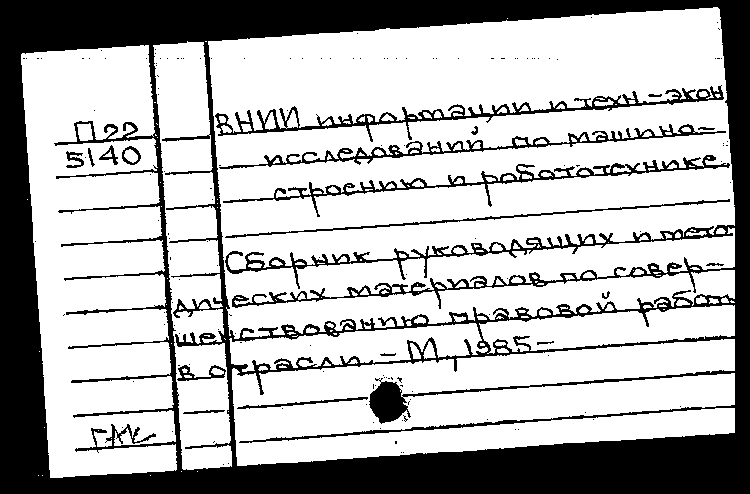 П22
5140
ВНИИ информации и техн.-экон
исследований по машино-
строению и робототехнике.
Сборник руководящих и мето
дических материалов по совер-
шенствованию правовой работы
в отрасли. - М., 1985 -